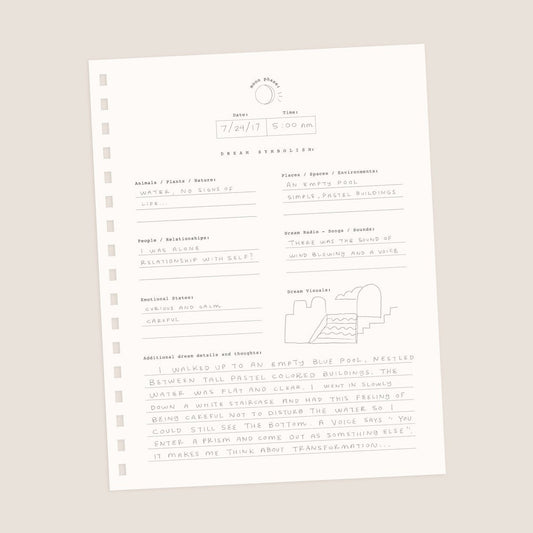 moon phase:
Date:
Time:
7/29/17
5:00 am
DREAM SYMBOLISM:
Animals / Plants / Nature:
WATER, NO SIGNS OF
LIFE...
Places / Spaces / Environments:
AN EMPTY POOL
SIMPLE, PASTEL BUILDINGS
People / Relationships:
I WAS ALONE
RELATIONSHIP WITH SELF?
Dream Radio - Songs / Sounds:
THERE WAS THE SOUND OF
WIND BLOWING AND A VOICE
Emotional States:
CURIOUS AND CALM
CAREFUL
Dream Visuals:
Additional dream details and thoughts:
I WALKED UP TO AN EMPTY BLUE POOL, NESTLED
BETWEEN TALL PASTEL COLORED BUILDINGS. THE
WATER WAS FLAT AND CLEAR. I WENT IN SLOWLY
DOWN A WHITE STAIRCASE AND HAD THIS FEELING OF
BEING CAREFUL NOT TO DISTURB THE WATER SO I
COULD STILL SEE THE BOTTOM. A VOICE SAYS "YOU
ENTER A PRISM AND COME OUT AS SOMETHING ELSE".
IT MAKES ME THINK ABOUT TRANSFORMATION...